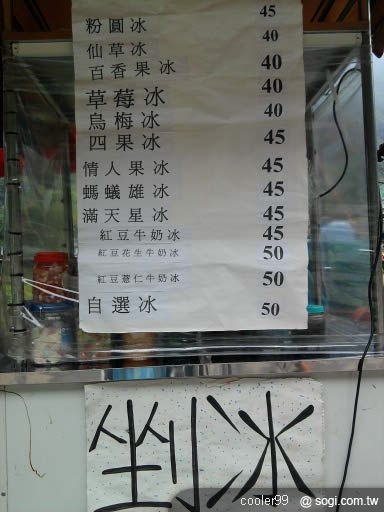 粉圓冰 45
仙草冰 40
百香果冰 40
草莓冰 40
烏梅冰 40
四果冰 45
情人果冰 45
螞蟻雄冰 45
滿天星冰 45
紅豆牛奶冰 45
紅豆花生牛奶冰 50
紅豆薏仁牛奶冰 50
自選冰 50
剉冰
cooler99 @ sogi.com.tw